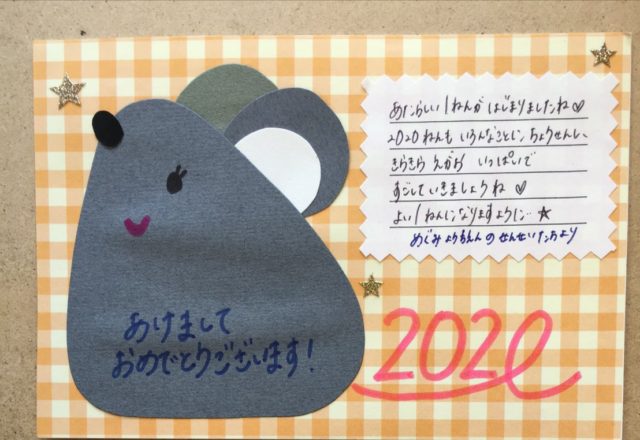 あたらしい1ねんがはじまりましたね♡
2020ねんも いろんなことに ちょうせんし、
きらきら えがお いっぱいで
すごしていきましょうね♡
よい1ねんになりますように…★
めぐみようちえんのせんせいたちより
あけまして
おめでとうございます!
2020